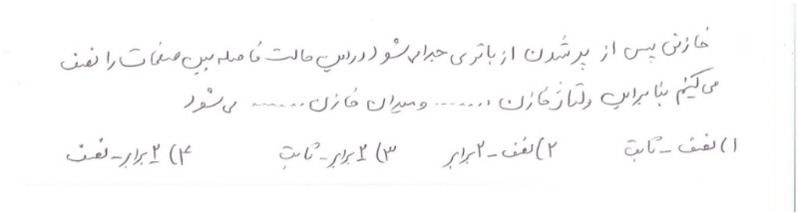 خازنی پس از پر شدن از باتری جدا می‌شود در این حالت فاصله بین صفحات را نصف
می‌کنیم بنابراین ولتاژ خازن ....... و میدان خازن ....... می‌شود
۱) نصف - ثابت ۲) نصف - ۲ برابر ۳) ۲ برابر - ثابت ۴) ۲ برابر - نصف